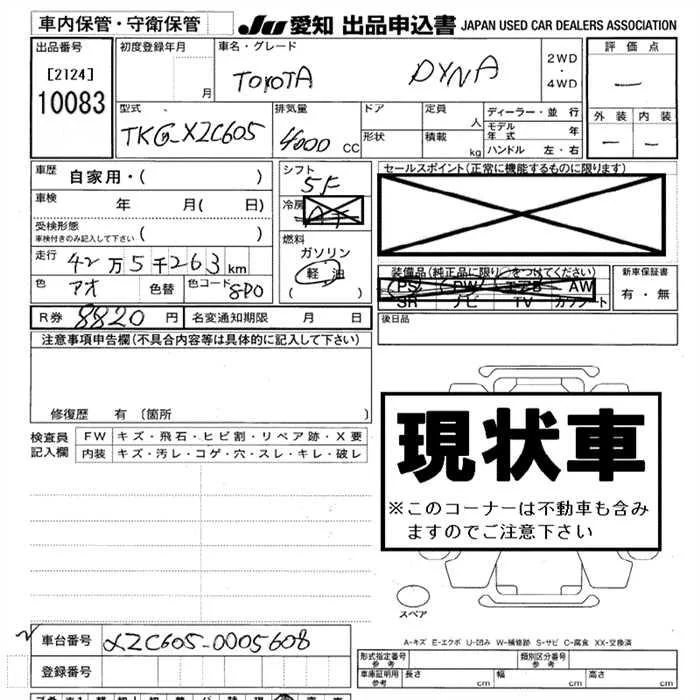 車内保管・守衛保管
JU 愛知 出品申込書 JAPAN USED CAR DEALERS ASSOCIATION
出品番号
[2124]
10083
初度登録年月
月
車名・グレード
TOYOTA DYNA
2WD
・
4WD
評価点
—
型式
TKG-XZC605
排気量
4000 CC
ドア
形状
定員
人
積載
kg
ディーラー・並行
モデル年式 年
ハンドル 左・右
外装 内装
— —
車歴 自家用・( )
車検 年 月( 日)
受検形態
車検付きのみ記入して下さい ( )
走行 42万5千263km
色 アオ 色替 色コード 8P0
シフト
5F
冷房
燃料
ガソリン
軽油
( )
セールスポイント(正常に機能するものに限ります)
装備品(純正品に限り○をつけてください)
PS PW エアB AW
SR ナビ TV カワシート
新車保証書
有・無
R券 8820円 名変通知期限 月 日
後日品
注意事項申告欄(不具合内容等は具体的に記入して下さい)
修復歴 有〔箇所 〕
検査員
記入欄
FW キズ・飛石・ヒビ割・リペア跡・X要
内装 キズ・汚レ・コゲ・穴・スレ・キレ・破レ
現状車
※このコーナーは不動車も含み
ますのでご注意下さい
スペア
A-キズ E-エクボ U-凹み W-補修跡 S-サビ C-腐食 XX-交換済
車台番号 XZC605-0005608
登録番号
形式指定番号
参考
類別区分番号
参考
車庫証明用
参考
長さ cm 幅 cm 高さ cm